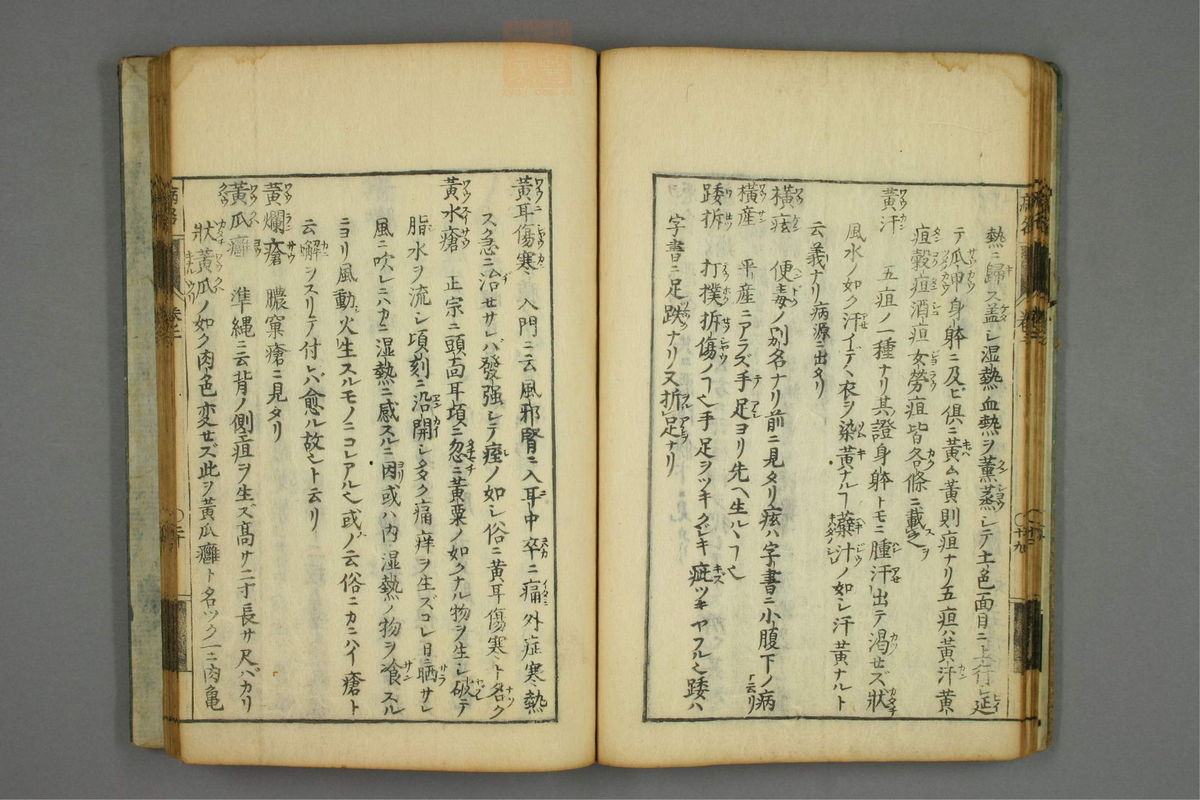 熱ニ歸ス蓋シ湿熱血熱ヲ薫蒸シテ土色面目ニ上行シ延
テ瓜甲身躰ニ及ビ俱ニ黃ム黃則疸ナリ五疸ハ黃汗黃
疸穀疸酒疸女勞疸皆各條ニ載之
黃汗 五疸ノ一種ナリ其證身躰トモニ腫汗出テ渴セズ狀
風水ノ如ク汗イデヽ衣ヲ染黃ナルヿ蘗汁ノ如シ汗黃ナルト
云義ナリ病源ニ出タリ
橫痃 便毒ノ別名ナリ前ニ見タリ痃ハ字書ニ小腹下ノ病ト云リ
橫產 平産ニアラズ手足ヨリ先ヘ生ルヽヿ也
踒折 打撲折傷ノヿ也手足ヲツキクジキ疵ツキヤフル也踒ハ
字書ニ足跌ナリ又折足ナリ
黃耳傷寒 入門ニ云風邪腎ニ入耳中卒ニ痛外症寒熱
ス急ニ治セサレバ發强シテ痓ノ如シ俗ニ黃耳傷寒ト名ク
黃水瘡 正宗ニ頭面耳項ニ忽ニ黃粟ノ如クナル物ヲ生シ破テ
脂水ヲ流シ頃刻ニ沿開シ多ク痛痒ヲ生ズコレ日ニ晒サレ
風ニ吹レニハカニ湿熱ニ感スルニ因或ハ内湿熱ノ物ヲ飡スル
ニヨリ風動火生スルモノニコレアル也或ノ云俗ニカニハイ瘡ト
云蠏ヲスリテ付レバ愈ル故ントト云リ
黃爛瘡 膿窠瘡ニ見タリ
黃瓜癰 準縄ニ云背ノ側ニ疽ヲ生ズ高サ二寸長サ尺バカリ
狀黃瓜ノ如ク肉色変セズ此ヲ黃瓜癰ト名ツク一ニ肉亀